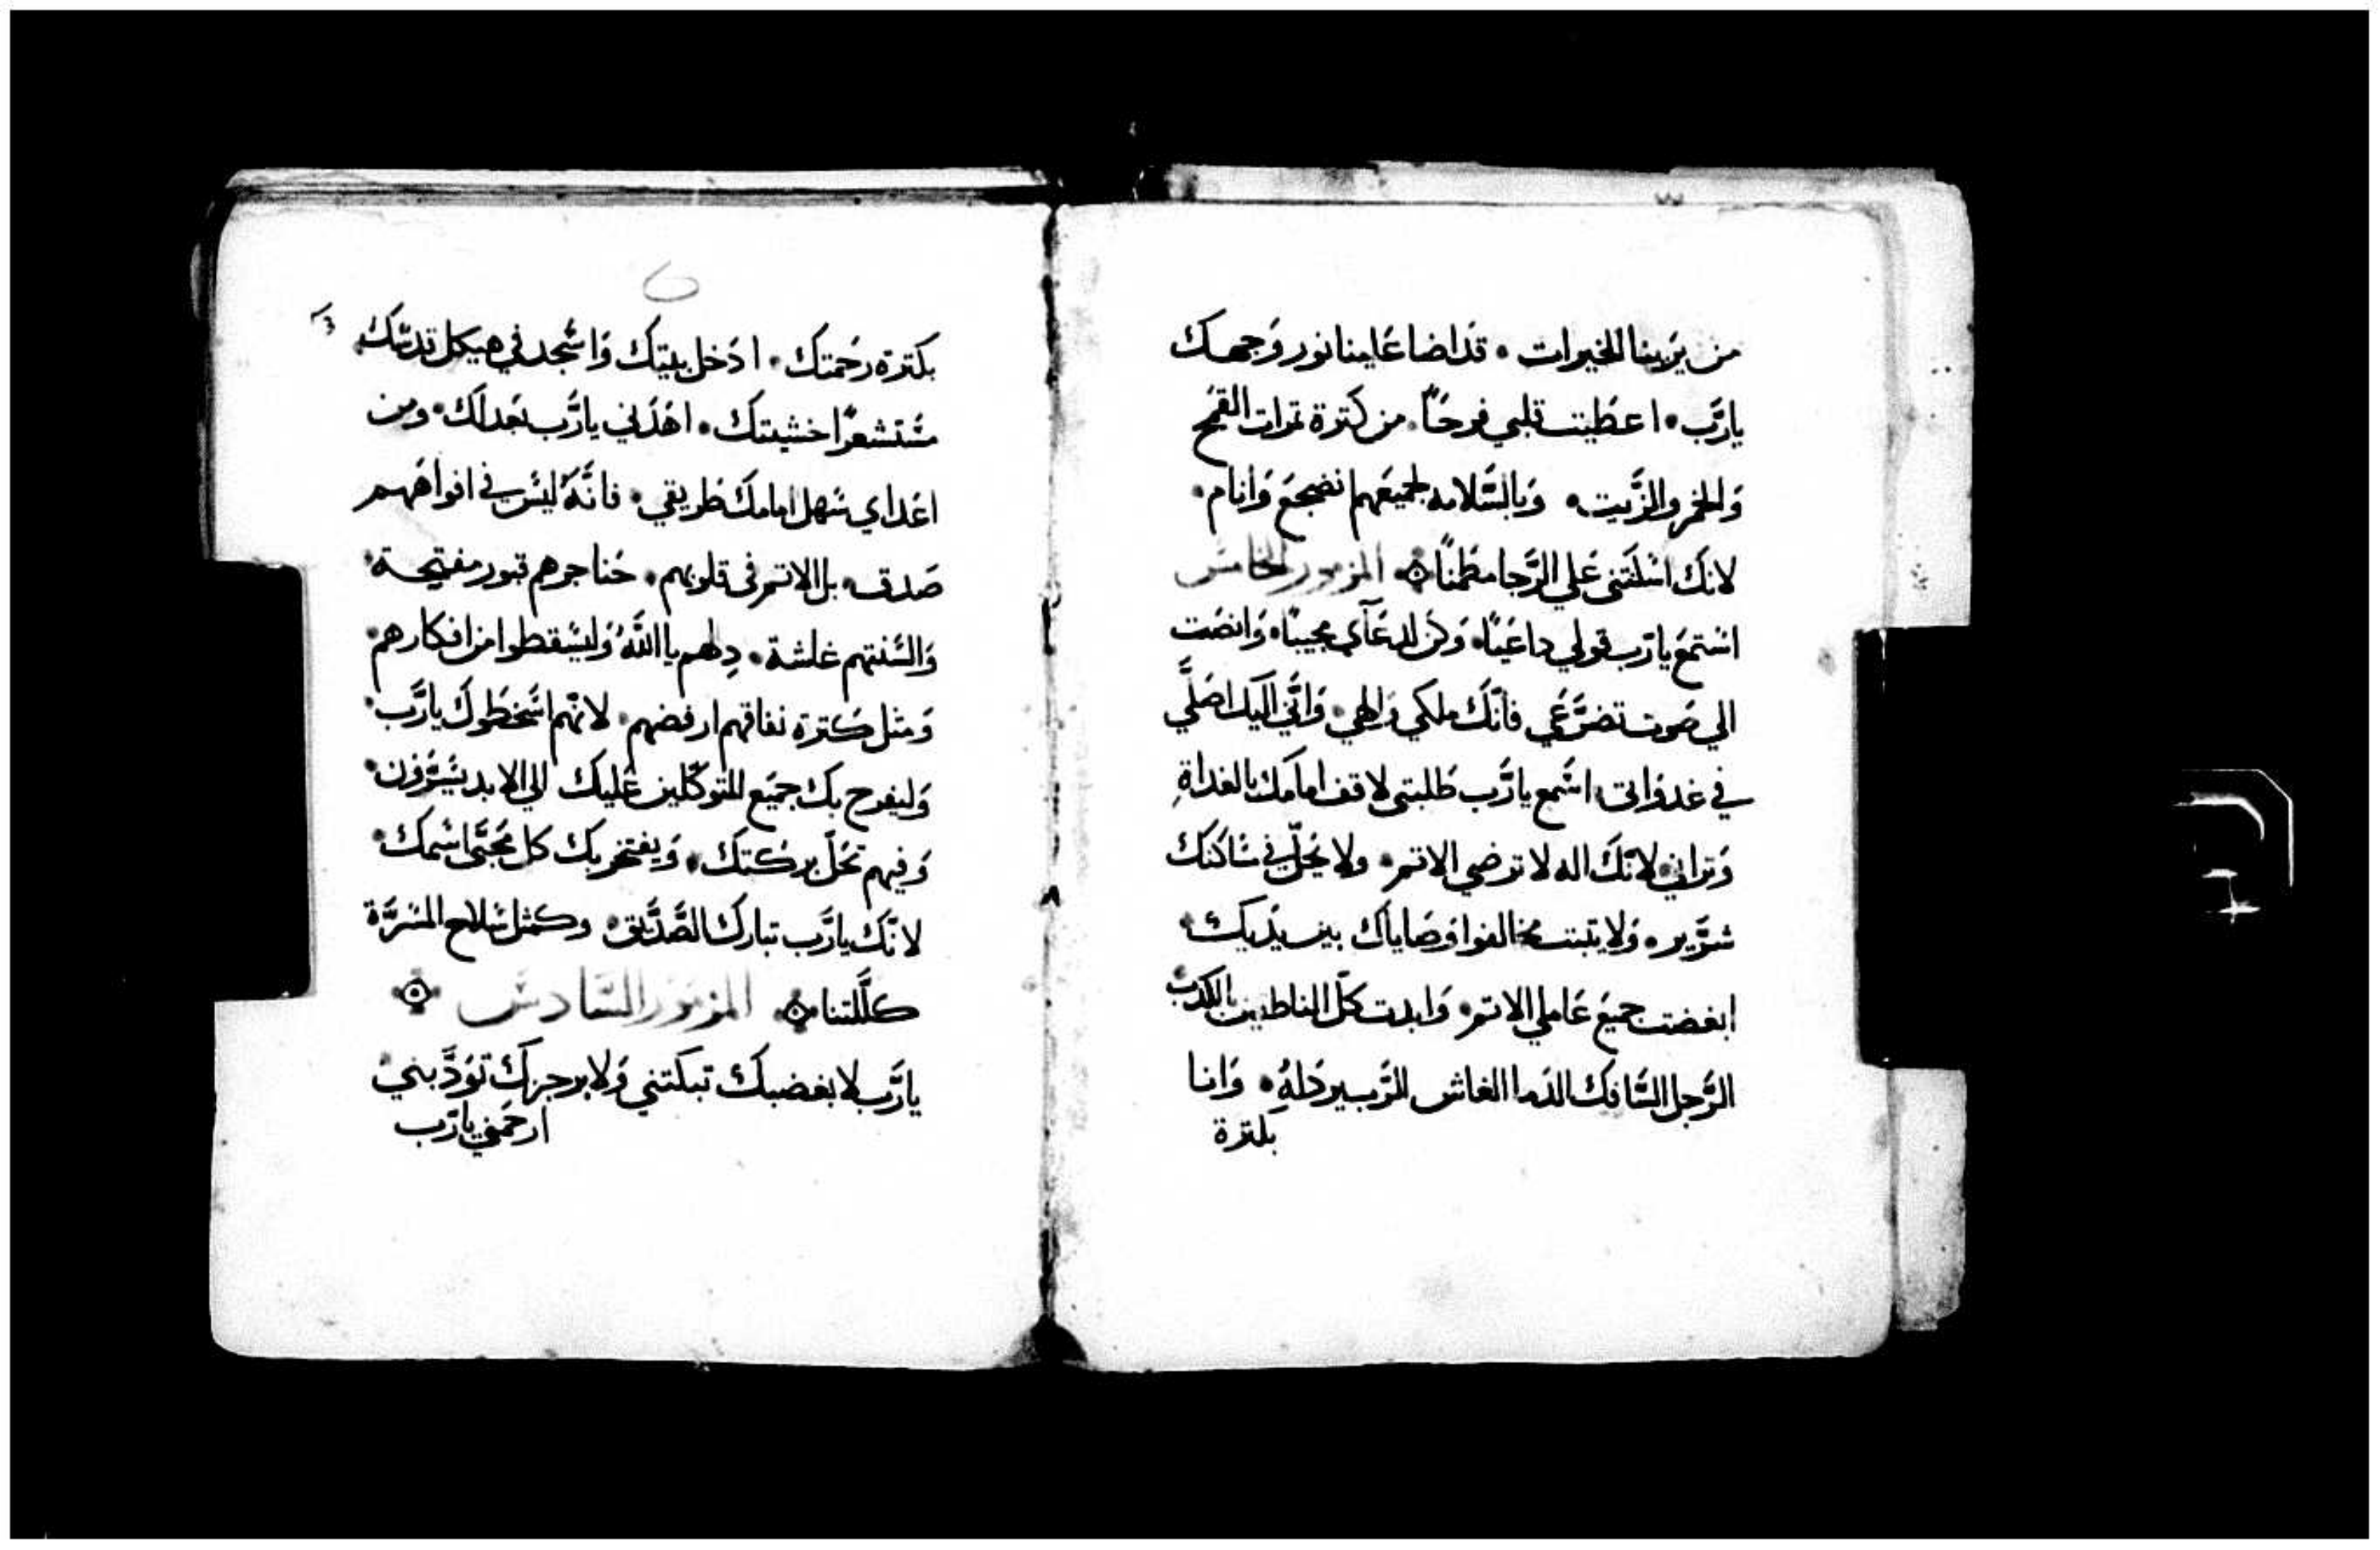 من يَرينا الخيرات • قد اضا عَلينا نور وَجهك
يارَّب • اعطَيت قلبي فرحًا • من كترة تمرات القمح
وَالخمر والزَّيت • وَبالسَّلامه لجميعَهم انضجعَ وَانام •
لانكَ اسْكَنتني عَلي الرَّجا مطمنًا المزمور الخامسَ
اسْتمعَ يارَّب قولي داعيًا • وَكن لدعَآي مجيبًا • وَانصَت
الي صَوت تضرَّعَي فانَّكَ ملكي وَالهي • وَانَّي اليَك اصَلَّي
في غدوَاتي • اسْمع يارَّب طَلبتي لاقف امامَك بالغداةِ
وَتراني • لانَّكَ اله لا ترضي الاتم • ولا يحَلّ في مسَاكنك
شرَّير • وَلا يتبت مخالفوا وَصَاياكَ بين يدَيك •
ابغضت جميعَ عَاملي الاتم • وَابدت كلّ الناطقين بالكدب
الرَّجل السَّافك الدَما الغاش الرَّب يردَلهُ • وَانا
بكترة
بكترة رحَمتك • ادَخل بيتَك وَاسْجد في هيكل قدسَك
مسَتشعرًا خشيتك • اهَدَني يارَّب بعَدلكَ • ومن
اعَداي سَهل امامكَ طَريقي • فانَّهَ ليسَ في افواهَهم
صَدق • بل الاتم في قلوبهم • حَناجرهم قبور مفتحَة •
وَالسَنتهم غلشة • دِنهم يا اللَّهُ وَليسَقطوا من افكارهم •
وَمثل كترة نفاقهم ارفضهم • لانهَّم اسَخطَوكَ يارَّب •
وَليفرح بك جميَع المتوكَّلين عَليك الي الابد يسَرَّون •
وَفيهم تحَلّ برَكتك • وَيفتخر بك كل محَبَّي اسْمك •
لانَّك يارَّب تبارك الصَّدَّيق • وكمثل سَلاح المسَرَّة
كلَّلتنا • المزمَور السَّادسَ
يارَّب لا بغضبك تبكتني وَلا برجزكَ توَدَّبني
ارحَمني يارَّب